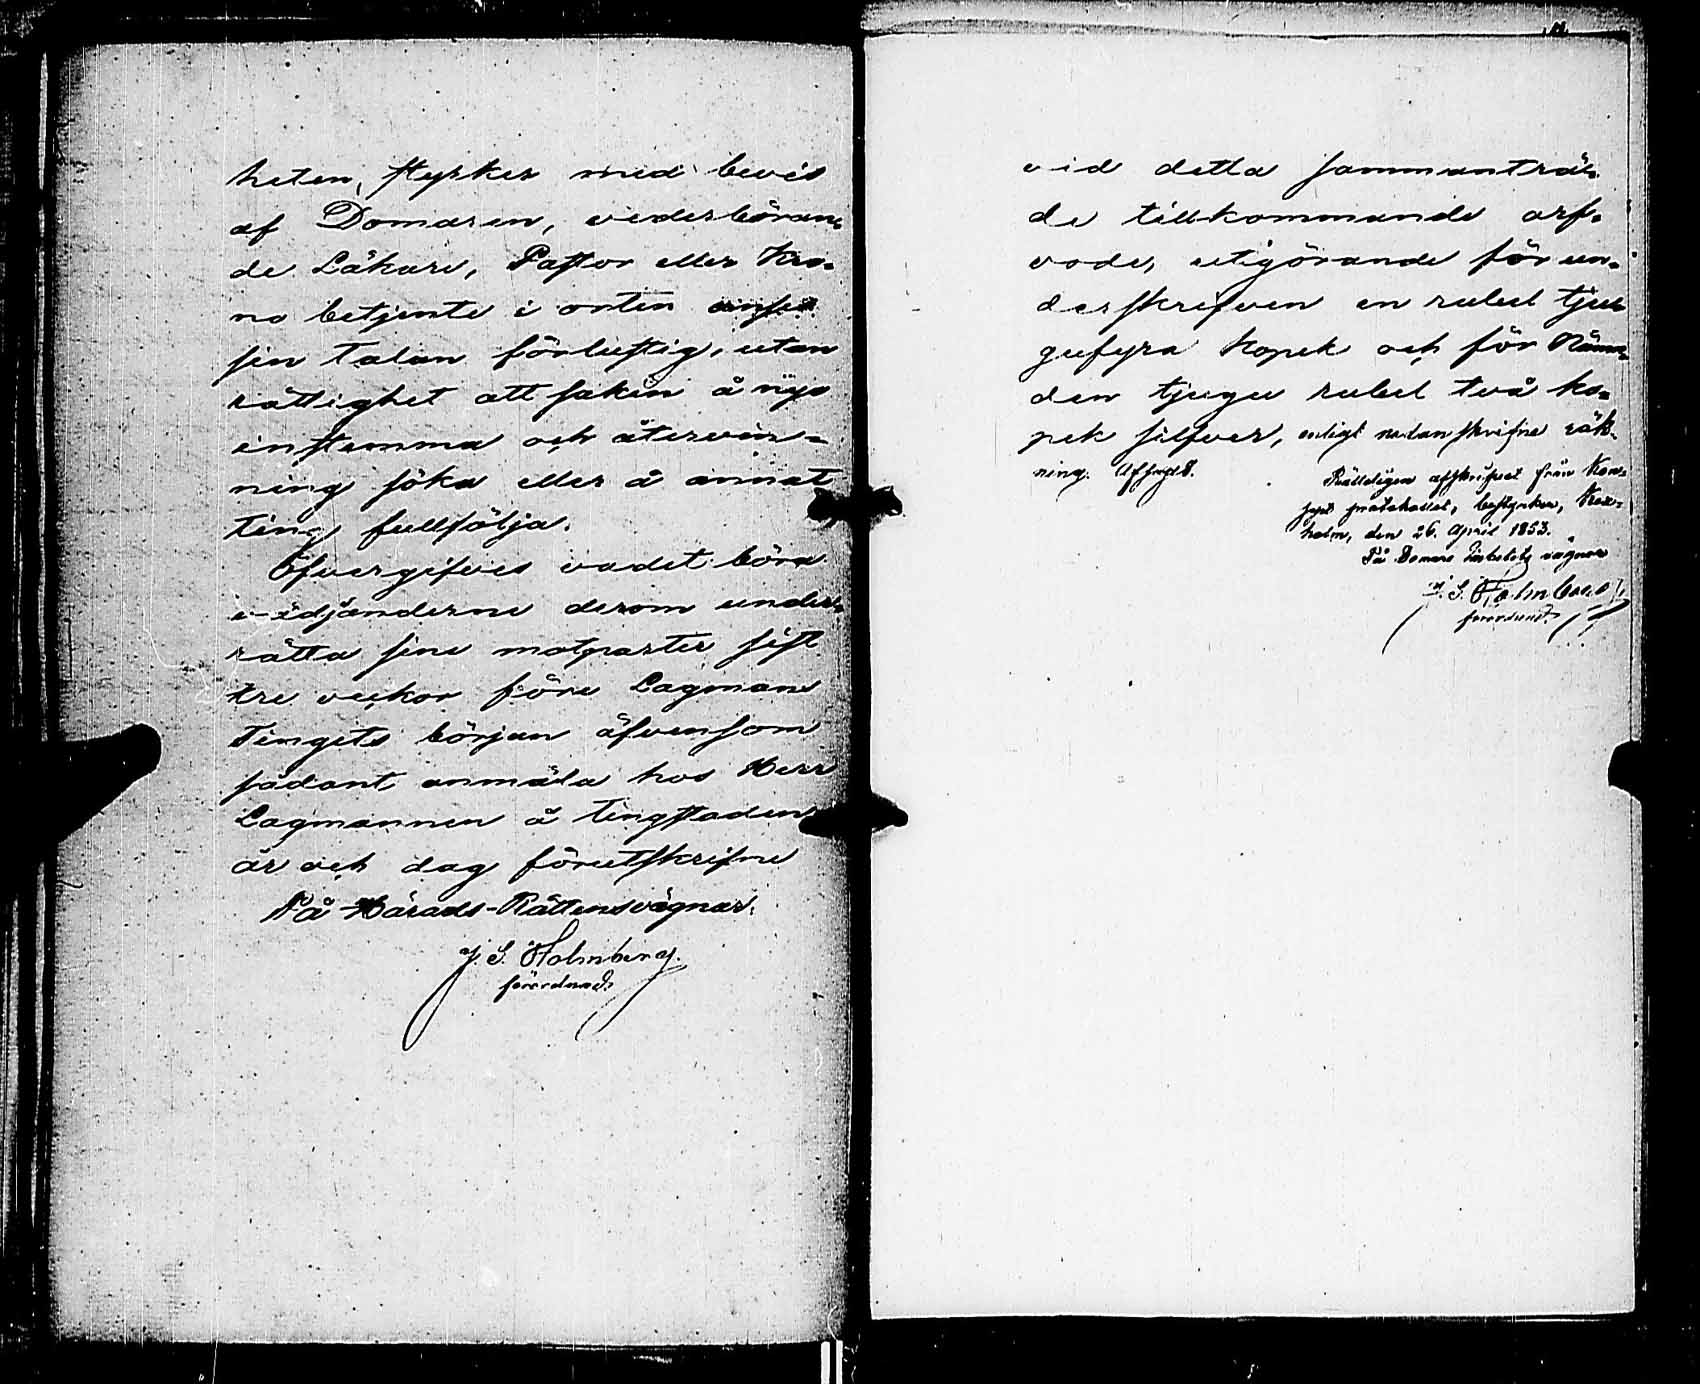 heten, styrker med bevis
af Domaren, vederböran-
de Läkare, Pastor eller Kro-
no betjente i orten anses
sin talan förlustig, utan
rättighet att saken å nyo
instemma och återvin-
ning söka eller å annat
ting fullfölja.
Öfvergifves vadet böra
vädjanderne derom under-
rätta sine motparter sist
tre veckor före Lagmans
Tingets början äfvensom
sådant anmäla hos Herr
Lagmannen å tingstaden
år och dag förutskrifne
På Härads-Rättens vägnar:
J. S. Holmberg.
förordnad.
vid detta sammanträ-
de tillkommande arf-
vode, utgörande för un-
derskrifven en rubel tju-
gufyra kopek och för Nämn-
den tjugu rubel två ko-
pek silfver, enligt nedanskrifne räk-
ning. Afsagdt.
Rätteligen afskrifvet från Kon-
cept protokollet, bestyrker, Kex-
holm, den 26. April 1853.
På Domare Embetets vägnar
J. S. Holmberg
förordnad.